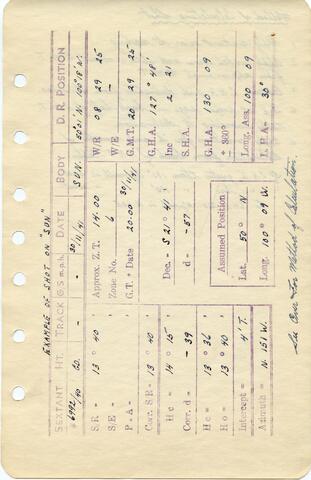 EXAMPLE OF SHOT ON "SUN"
SEXTANT HT. TRACK G.S m.p.h. DATE BODY D.R. POSITION
#6992/40 60. - - 30/11/41 SUN. 50°01'N. 100°18'W.
S.R - 13° 40' Approx. Z.T. 14.00 W/R 08 29 25
S/E - Zone No. 6 W/E -
P-A- G.T. + Date 20.00 30/11/41 G.M.T. 20 29 25
Corr. S.R- 13° 40' G.H.A. 127° 48'
Hc = 14° 15' Dec.- S 21° 41' Inc 2 21
Corr. d - - 39 d - -57 S.H.A.
Hc = 13° 36' G.H.A. 130 09
Ho = 13° 40' Assumed Position ± 360°
Intercept = 4' T. Lat. 50° N Long. Ass. 100 09
Azimuth = N 151 W. Long. 100° 09 W. L.H.A- 30°
See Over For Method of Calculation.